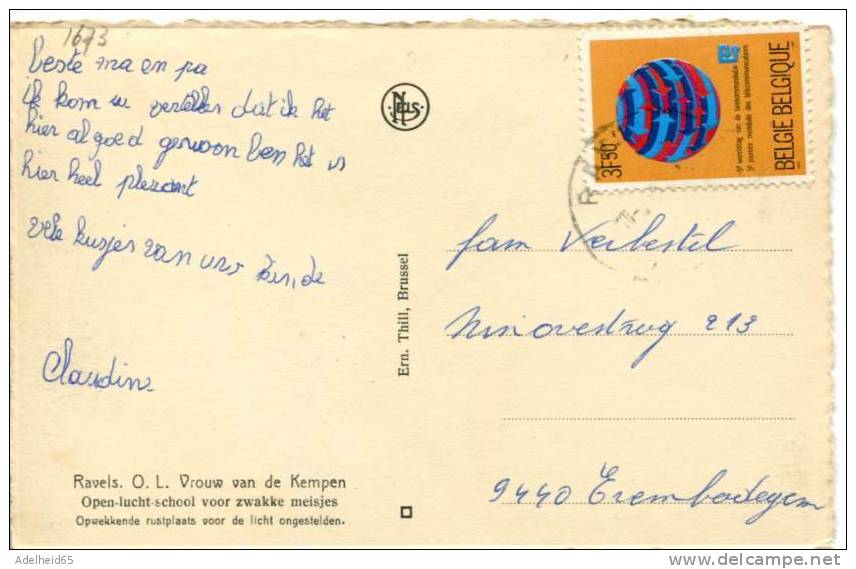 1673
beste ma en pa
ik kom u vertellen dat ik het
hier al goed gewoon ben het is
hier heel plezant
vele kusjes van uw kinde
Claudine
Ravels. O. L. Vrouw van de Kempen
Open-lucht-school voor zwakke meisjes
Opwekkende rustplaats voor de licht ongestelden.
Nels
Ern. Thill, Brussel
BELGIE BELGIQUE
5e werelddag van de telekommunikatie
5e journée mondiale des télécommunications
3F50
fam Verbestel
Ninovestwg 213
9440 Erembodegem
Adelheid65
delcampe.net